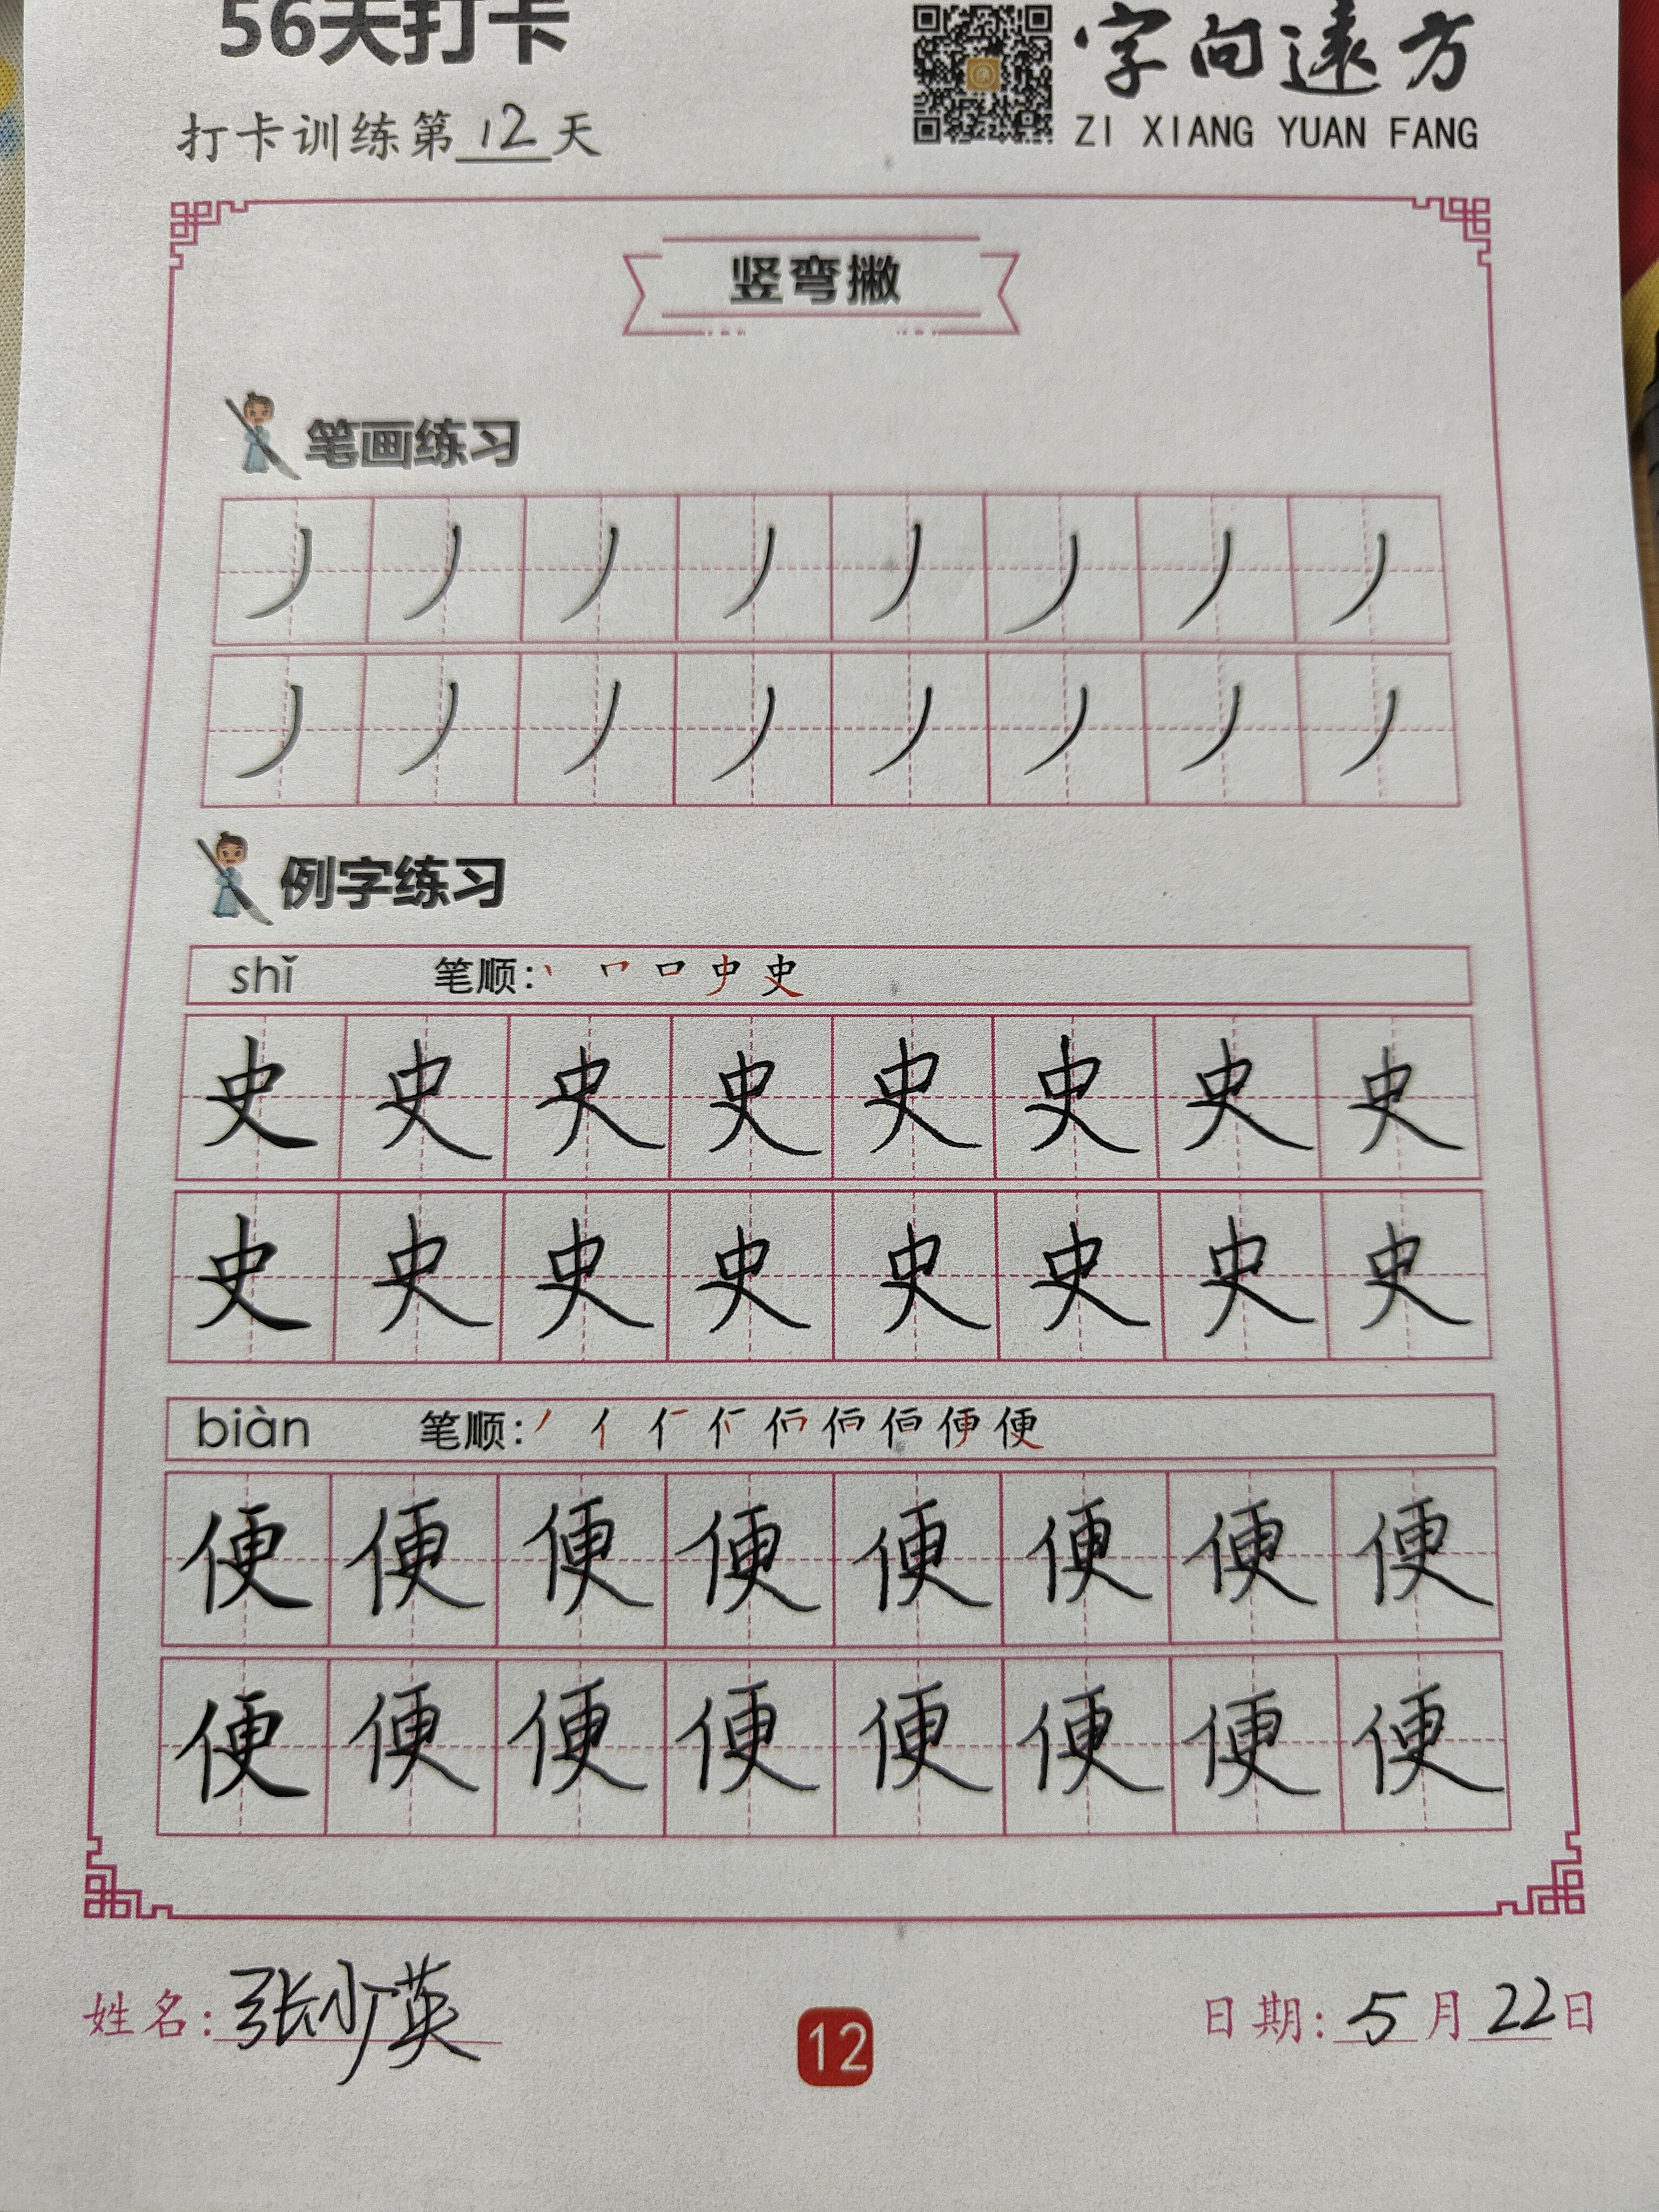 56天打卡
字向遠方
打卡训练第12天
ZI XIANG YUAN FANG
竖弯撇
笔画练习
丿丿丿丿丿丿丿丿
丿丿丿丿丿丿丿丿
例字练习
shǐ 笔顺: 丶 𠃍 口 史 史
史史史史史史史史
史史史史史史史史
biàn 笔顺: 丿 亻 亻 亻 佰 佰 佰 便 便
便便便便便便便便
便便便便便便便便
姓名: 张少英
12
日期: 5月22日